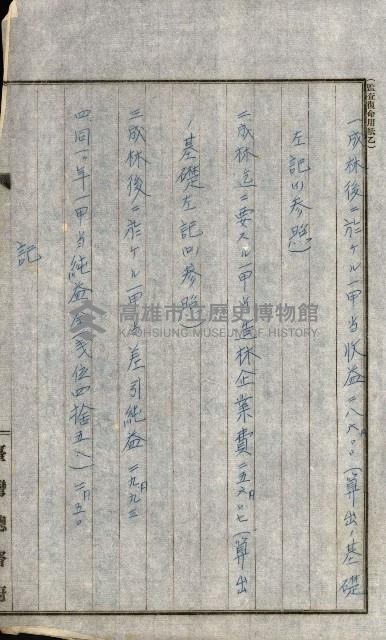 (監査復命用紙乙)
一成林後ニ於ケル一甲当収益=八六円〇〇(算出ノ基礎
左記(1)参照)
二成林迄ニ要スル一甲当造林企業費=五六円〇七(算出
ノ基礎左記(2)参照)
三成林後ニ於ケル一甲当差引純益=二九円九三
四同一ヶ年一甲当純益
記
臺灣總督府
高雄市立歷史博物館
KAOHSIUNG MUSEUM OF HISTORY